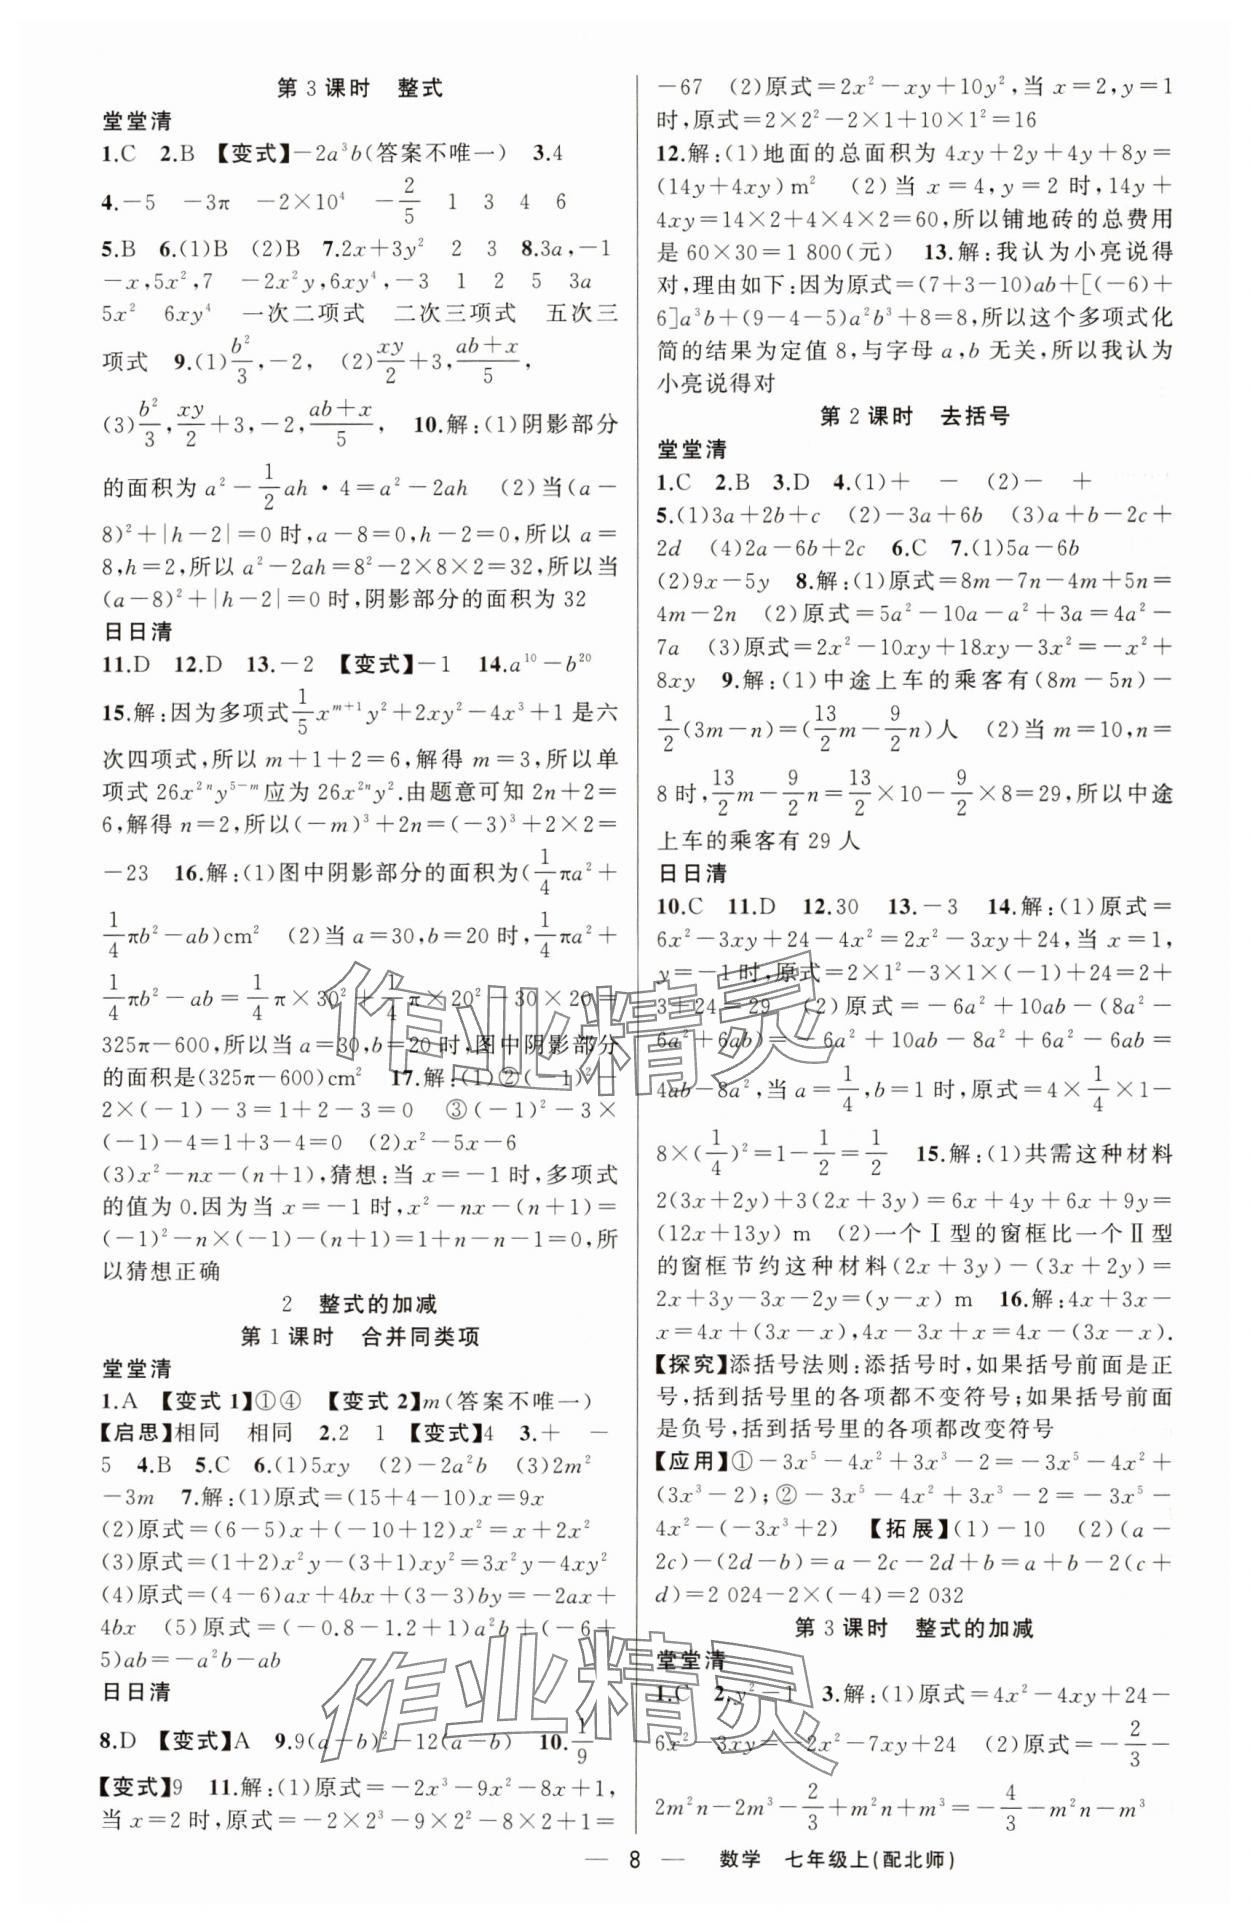 第3课时 整式
堂堂清
1.C 2.B 【变式】-2a³b(答案不唯一) 3.4
4.-5 -3π -2×10⁴ -2/5 1 3 4 6
5.B 6.(1)B (2)B 7.2x+3y² 2 3 8.3a,-1
-x,5x²,7 -2x²y,6xy⁴,-3 1 2 5 3a
5x² 6xy⁴ 一次二项式 二次三项式 五次三
项式 9.(1)b²/3,-2, (2)xy/2+3,(ab+x)/5,
(3)b²/3,xy/2+3,-2,(ab+x)/5, 10.解:(1)阴影部分
的面积为a²-1/2ah·4=a²-2ah (2)当(a-
8)²+|h-2|=0时,a-8=0,h-2=0,所以a=
8,h=2,所以a²-2ah=8²-2×8×2=32,所以当
(a-8)²+|h-2|=0时,阴影部分的面积为32
日日清
11.D 12.D 13.-2 【变式】-1 14.a¹⁰-b²⁰
15.解:因为多项式1/5x^(m+1)y²+2xy²-4x³+1是六
次四项式,所以m+1+2=6,解得m=3,所以单
项式26x^(2n)y^(5-m)应为26x^(2n)y².由题意可知2n+2=
6,解得n=2,所以(-m)³+2n=(-3)³+2×2=
-23 16.解:(1)图中阴影部分的面积为(1/4πa²+
1/4πb²-ab)cm² (2)当a=30,b=20时,1/4πa²+
1/4πb²-ab=1/4π×30²+1/4π×20²-30×20=
325π-600,所以当a=30,b=20时,图中阴影部分
的面积是(325π-600)cm² 17.解:(1)②(-1)²-
2×(-1)-3=1+2-3=0 ③(-1)²-3×
(-1)-4=1+3-4=0 (2)x²-5x-6
(3)x²-nx-(n+1),猜想:当x=-1时,多项式
的值为0.因为当x=-1时,x²-nx-(n+1)=
(-1)²-n×(-1)-(n+1)=1+n-n-1=0,所
以猜想正确
2 整式的加减
第1课时 合并同类项
堂堂清
1.A 【变式1】①④ 【变式2】m(答案不唯一)
【启思】相同 相同 2.2 1 【变式】4 3.+ -
5 4.B 5.C 6.(1)5xy (2)-2a²b (3)2m²
-3m 7.解:(1)原式=(15+4-10)x=9x
(2)原式=(6-5)x+(-10+12)x²=x+2x²
(3)原式=(1+2)x²y-(3+1)xy²=3x²y-4xy²
(4)原式=(4-6)ax+4bx+(3-3)by=-2ax+
4bx (5)原式=(-0.8-1.2+1)a²b+(-6+
5)ab=-a²b-ab
日日清
8.D 【变式】A 9.9(a-b)²-12(a-b) 10.1/9
【变式】9 11.解:(1)原式=-2x³-9x²-8x+1,
当x=2时,原式=-2×2³-9×2²-8×2+1=
-67 (2)原式=2x²-xy+10y²,当x=2,y=1
时,原式=2×2²-2×1+10×1²=16
12.解:(1)地面的总面积为4xy+2y+4y+8y=
(14y+4xy)m² (2)当x=4,y=2时,14y+
4xy=14×2+4×4×2=60,所以铺地砖的总费用
是60×30=1 800(元) 13.解:我认为小亮说得
对,理由如下:因为原式=(7+3-10)ab+[(-6)+
6]a³b+(9-4-5)a²b³+8=8,所以这个多项式化
简的结果为定值8,与字母a,b无关,所以我认为
小亮说得对
第2课时 去括号
堂堂清
1.C 2.B 3.D 4.(1)+ - (2)- +
5.(1)3a+2b+c (2)-3a+6b (3)a+b-2c+
2d (4)2a-6b+2c 6.C 7.(1)5a-6b
(2)9x-5y 8.解:(1)原式=8m-7n-4m+5n=
4m-2n (2)原式=5a²-10a-a²+3a=4a²-
7a (3)原式=2x²-10xy+18xy-3x²=-x²+
8xy 9.解:(1)中途上车的乘客有(8m-5n)-
1/2(3m-n)=(13/2m-9/2n)人 (2)当m=10,n=
8时,13/2m-9/2n=13/2×10-9/2×8=29,所以中途
上车的乘客有29人
日日清
10.C 11.D 12.30 13.-3 14.解:(1)原式=
6x²-3xy+24-4x²=2x²-3xy+24,当x=1,
y=-1时,原式=2×1²-3×1×(-1)+24=2+
3+24=29 (2)原式=-6a²+10ab-(8a²-
6a²+6ab)=-6a²+10ab-8a²+6a²-6ab=
4ab-8a²,当a=1/4,b=1时,原式=4×1/4×1-
8×(1/4)²=1-1/2=1/2 15.解:(1)共需这种材料
2(3x+2y)+3(2x+3y)=6x+4y+6x+9y=
(12x+13y) m (2)一个Ⅰ型的窗框比一个Ⅱ型
的窗框节约这种材料(2x+3y)-(3x+2y)=
2x+3y-3x-2y=(y-x) m 16.解:4x+3x-
x=4x+(3x-x),4x-3x+x=4x-(3x-x).
【探究】添括号法则:添括号时,如果括号前面是正
号,括到括号里的各项都不变符号;如果括号前面
是负号,括到括号里的各项都改变符号
【应用】①-3x⁵-4x²+3x³-2=-3x⁵-4x²+
(3x³-2);②-3x⁵-4x²+3x³-2=-3x⁵-
4x²-(-3x³+2) 【拓展】(1)-10 (2)(a-
2c)-(2d-b)=a-2c-2d+b=a+b-2(c+
d)=2 024-2×(-4)=2 032
第3课时 整式的加减
堂堂清
1.C 2.y²-1 3.解:(1)原式=4x²-4xy+24-
6x²-3xy=-2x²-7xy+24 (2)原式=-2/3-
2m²n-2m³-2/3+m²n+m³=-4/3-m²n-m³
— 8 — 数学 七年级上(配北师)
作业精灵
作业精灵